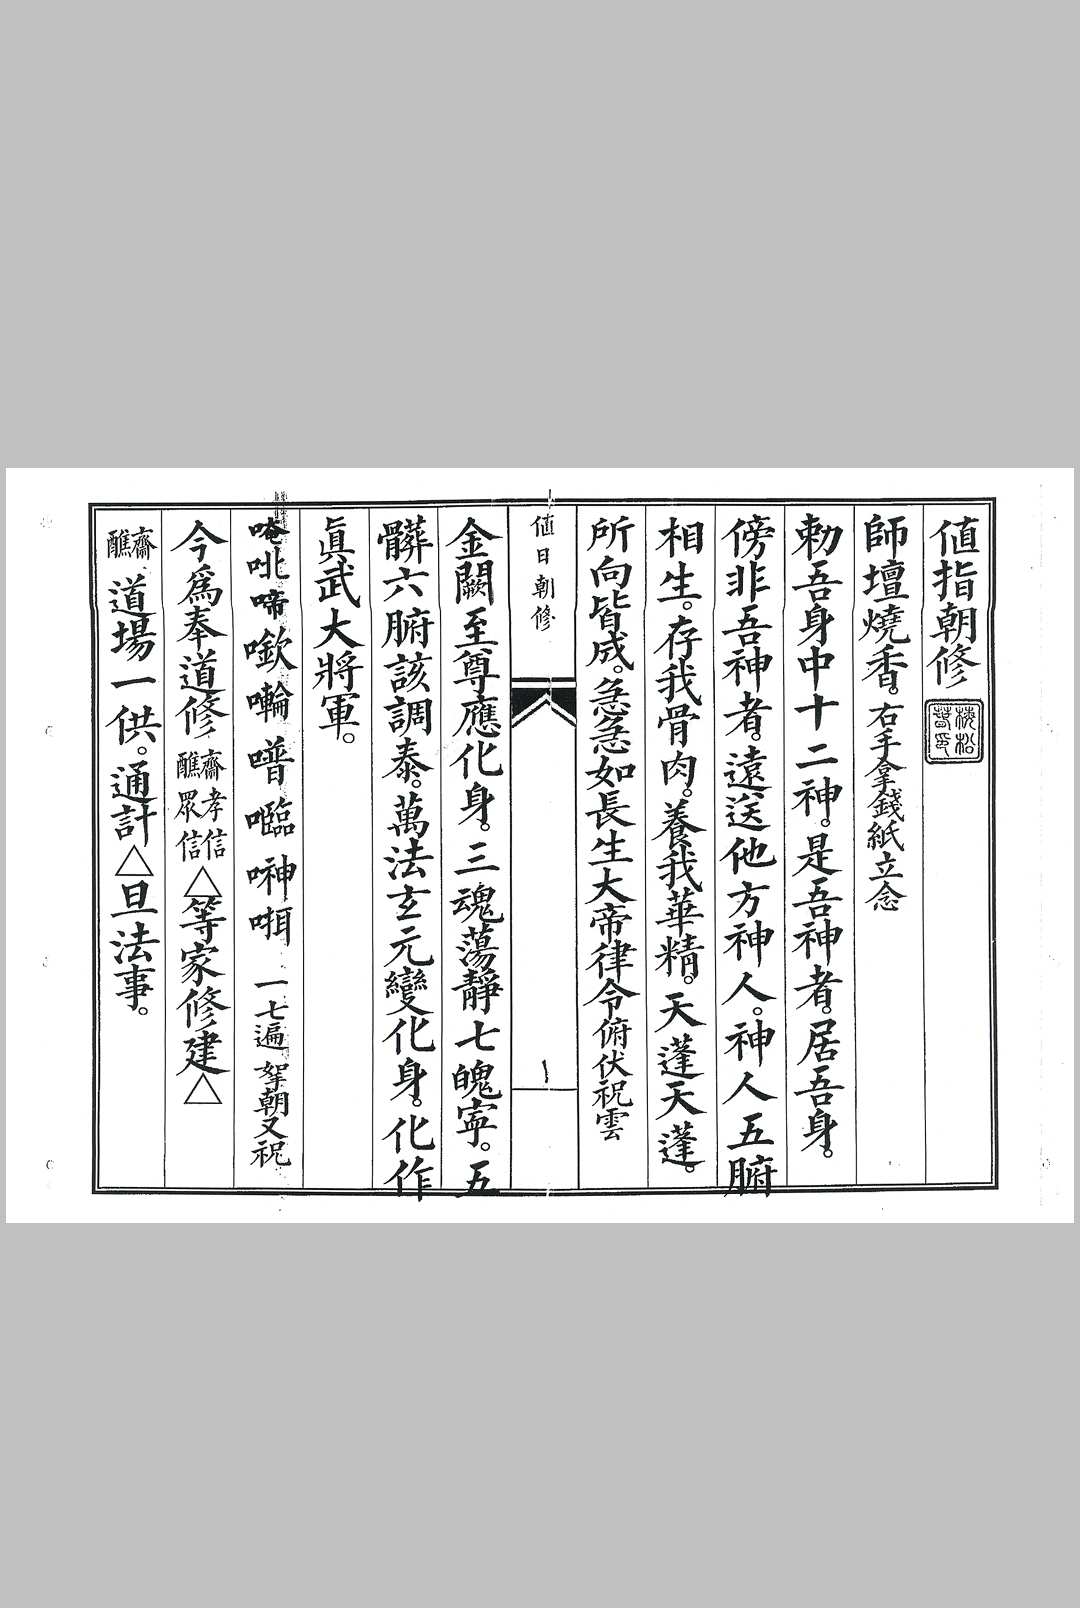 値指朝修
師壇燒香。右手拿錢紙立念
勅吾身中十二神。是吾神者。居吾身。
傍非吾神者。遠送他方神人。神人五腑
相生。存我骨肉。養我華精。天蓬天蓬。
所向皆成。急急如長生大帝律令俯伏祝雲
値日朝修
一
金闕至尊應化身。三魂蕩靜七魄寧。五
髒六腑該調泰。萬法玄元變化身。化作
眞武大將軍。
唵吡啼㘎噌𡄸 一七遍 挐朝又祝
今爲奉道修齋醮孝眾信信△等家修建△
齋醮道場一供。通計△旦法事。